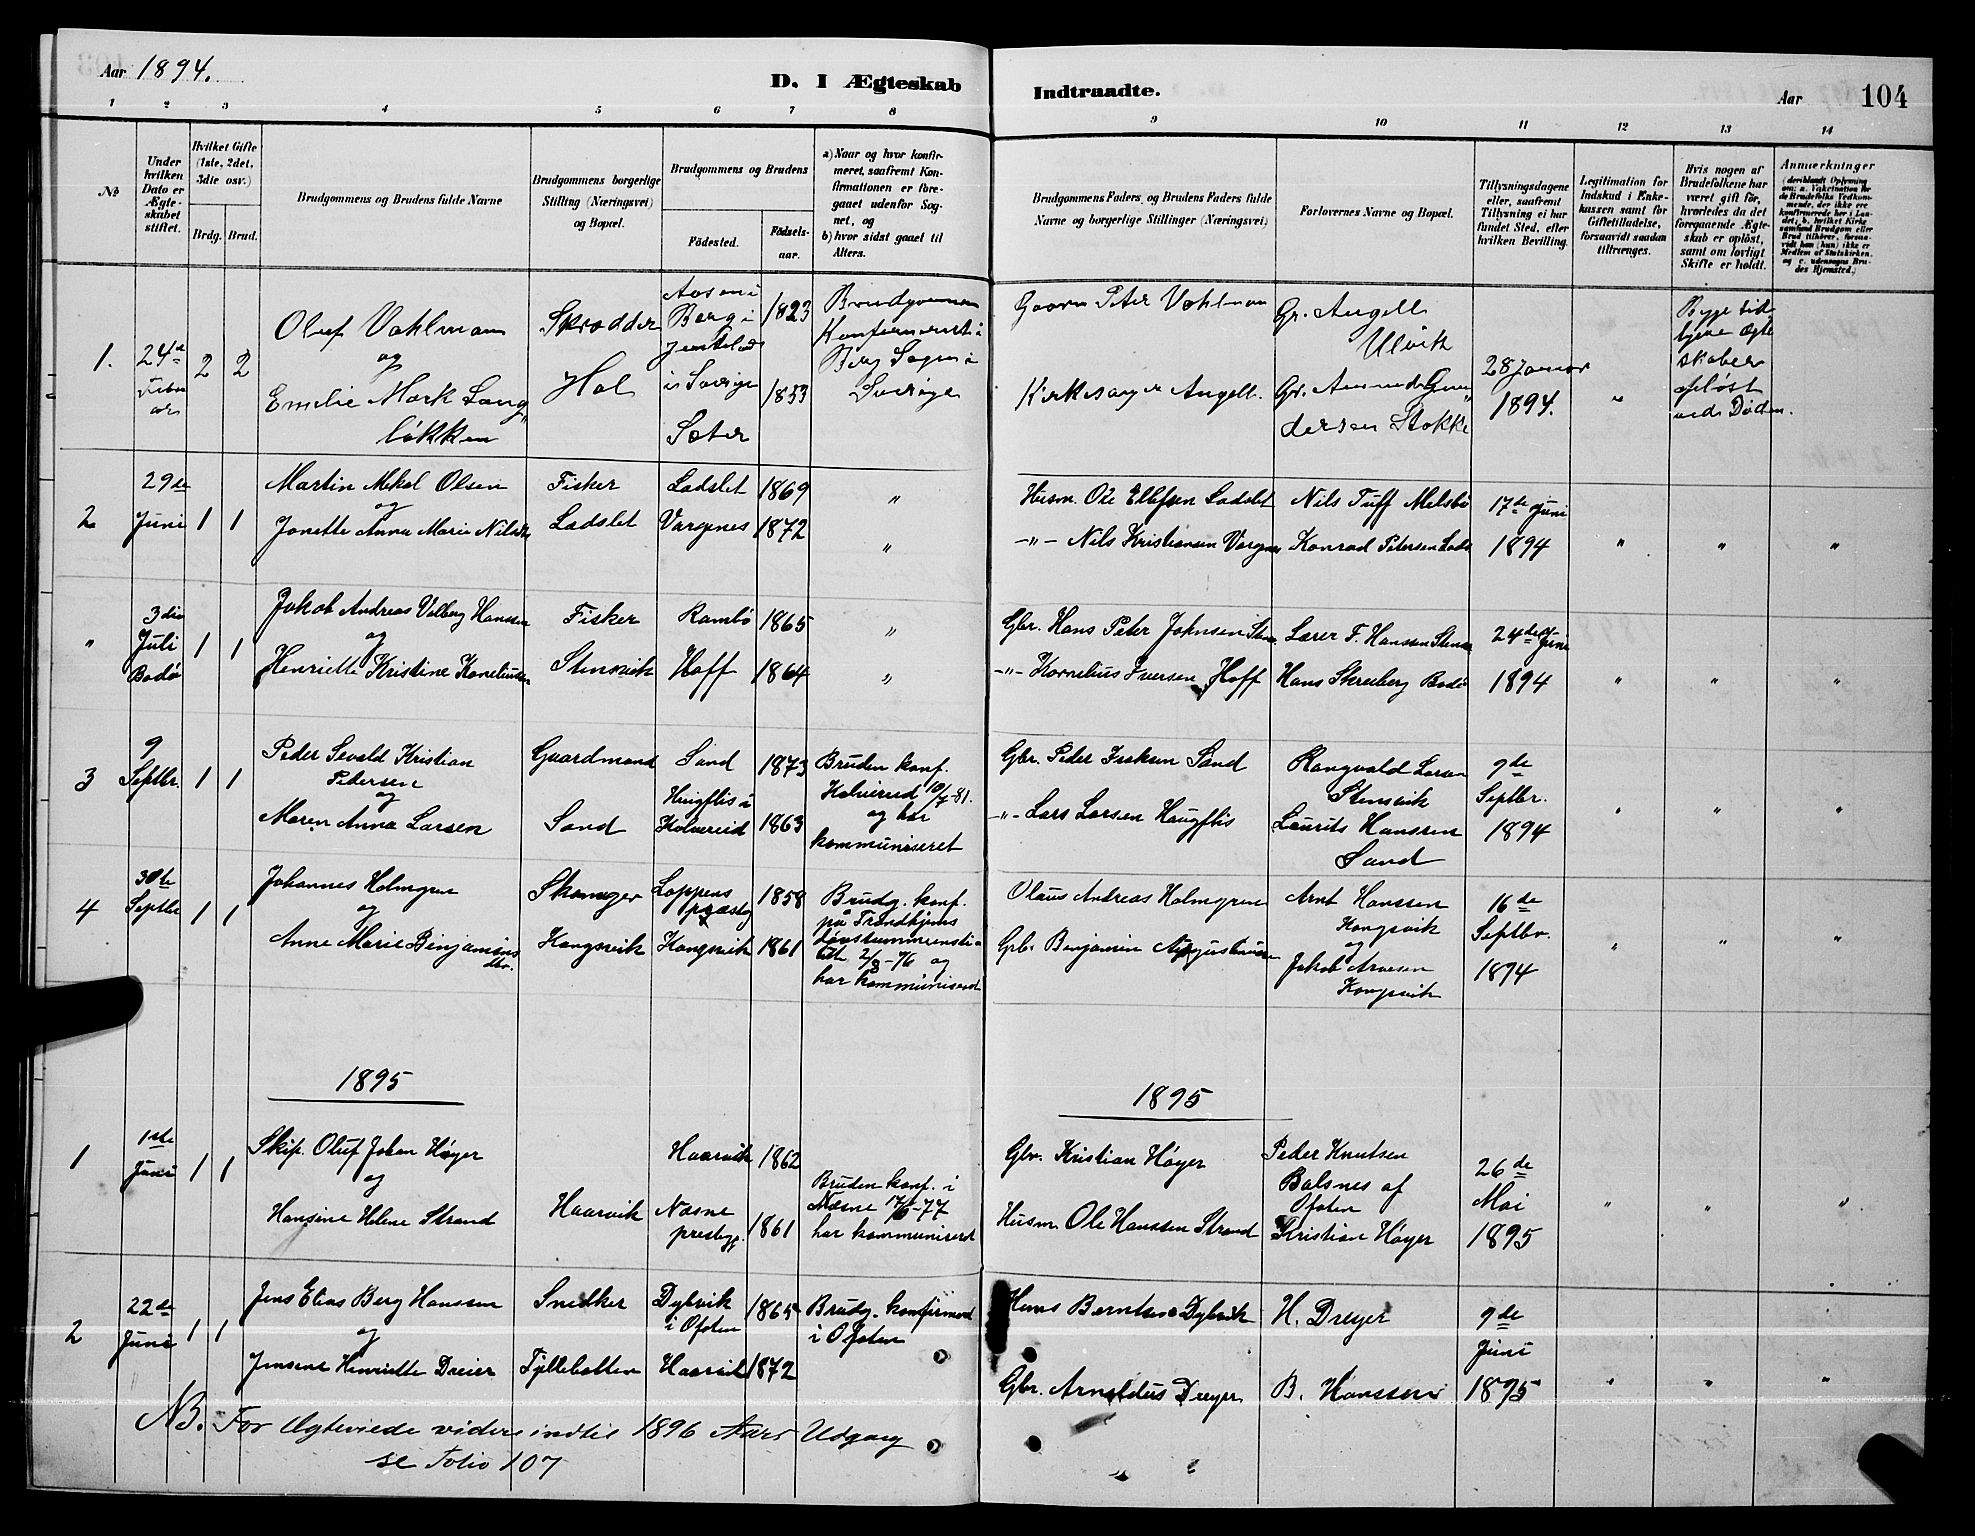 Aar 1894.
D. I Ægteskab
Indtraadte.
Aar
104
1 2 3 4 5 6 7 8
9 10 11 12 13 14
No
Under hvilken Dato er Ægte-skabet stiftet.
Hvilket Gifte (1ste, 2det, 3die osv.)
Brdg. Brud.
Brudgommens og Brudens fulde Navne
Brudgommens borgerlige Stilling (Næringsvei) og Bopæl.
Brudgommens og Brudens
Födested.
Födsels-aar.
a) Naar og hvor konfir-meret, saafremt Kon-firmationen er fore-gaaet udenfor Sog-net, og
b) hvor sidst gaaet til Alters.
Brudgommens Faders, og Brudens Faders fulde Navne og borgerlige Stillinger (Næringsvei)
Forlovernes Navne og Bopæl.
Tillysningsdagene eller, saafremt Tillysning ei har fundet Sted, efter hvilken Bevilling.
Legitimation for Indskud i Enke-kassen samt for Giftetilladelse, forsaavidt saadan tiltrænges.
Hvis nogen af Brudefolkene har været gift för, hvorledes da det foregaaende Ægte-skab er oplöst, samt om lovligt Skifte er holdt.
Anmærkninger
1. 24de Februar 2 2
Oluf Vahlman
og
Emilie Mørk Lang"
løkken
Skrædder
Hol
Berg i
i Sverige
Sæter
1823
1853
Brudgommen
Konfirmeret i
Berg Sogn i
Sverige
Gaarm Peter Vahlman
Kirkesanger Angell.
Gr. Angell
Ulvik
Gr. Amund Gun"
dersen Stokke
28 Januar
1894.
"
Begge tid
ligere ægte
skaber
opløst
ved Døden.
2 29de Juni 1 1
Martin Mekal Olsen
og
Jonette Anna Marie Nilsdtr
Fisker
Ladslet
Ladslet
Vargenes
1869
1872
"
"
Husm. Ole Ellefsen Ladslet
-"- Nils Kristiansen Vargnes
Nils Tuff Melsbø
Konrad Petersen Lads
17de Juni
1894
" " "
" 3die Juli Bodø 1 1
Jakob Andreas Volberg Hanssen
og
Henriette Kristine Korneliussen
Fisker
Stensvik
Rambø
Hoff
1865
1864
"
"
Gbr. Hans Peter Johnsen Stens
-"- Kornelius Iversen Hoff
Lærer F. Hanssen Stensv
Hans Skreiberg Bodø
24de Juni
1894
" " "
3 9 Septbr. 1 1
Peder Sevald Kristian
Pedersen
og
Maren Anna Larsen
Gaardmand
Sand
Sand
Haugflis i
Kolvereid
1873
1863
Bruden konf.
Kolvereid 10/7-81.
og har
kommuniseret
Gbr. Peder Isaksen Sand
-"- Lars Larsen Haugflis
Rangvald Larsen
Stensvik
Laurits Hanssen
Sand
9de
Septbr.
1894
" " "
4 30te Septbr 1 1
Johannes Holmgren
og
Anne Marie Benjamins
dtr.
Skomager
Kongsvik
Loppens
præstg
Kongsvik
1858
1861
Brudg. konf.
på Trondhjems
døvstummeinsti
tut 2/8-76 og
har kommuniseret
Olaus Andreas Holmgren
Gbr. Benjamin Augustinussen
Arnt Hanssen
Kongsvik
og
Jakob Arnesen
Kongsvik
16de
Septbr.
1894
" " "
1895
1895
1 1ste Juni 1 1
Skip. Oluf Johan Høyer
og
Hansine Helene Strand
Haarvik
Haarvik
Næsne
prestegj.
1862
1861
Bruden konf. i
Næsne 17/6-77
har kommuniseret
Gbr. Kristian Høyer
Husm. Ole Hanssen Strand
Peder Knutsen
Balsnes af
Ofoten
Kristian Høyer
26de
Mai
1895
" " "
2 22de Juni 1 1
Jens Elias Berg Hanssen
og
Jensine Henriette Dreier
Snedker
Tyttebotten
Dybvik
i Ofoten
Haarvik
1865
1872
Brudg. konfirmered
i Ofoten
Hans Berntsen Dybvik
Gbr. Arnoldus Dreyer
H. Dreyer
B. Hanssen
9de
Juni
1895
" " "
NB. For Ægteviede videre indtil 1896 Aars Udgang
se Folio 107